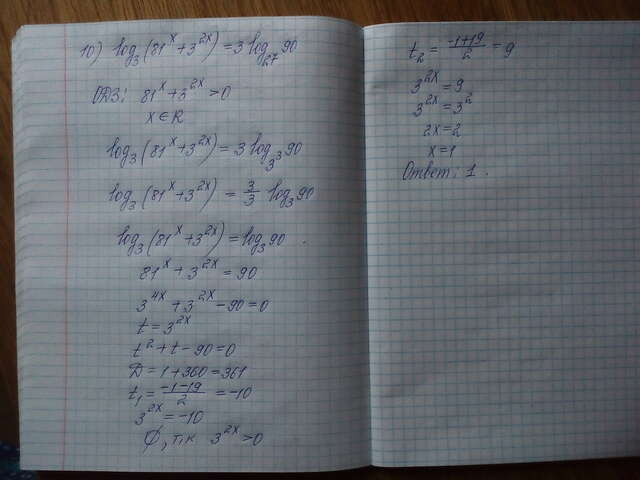 10) log₃(81ˣ+3²ˣ)=3 log₂₇90
ОДЗ: 81ˣ+3²ˣ>0
x∈R
log₃(81ˣ+3²ˣ)=3 log₃³90
log₃(81ˣ+3²ˣ) = 3/3 log₃90
log₃(81ˣ+3²ˣ)=log₃90.
81ˣ+3²ˣ=90
3⁴ˣ+3²ˣ-90=0
t=3²ˣ
t²+t-90=0
D=1+360=361
t₁=(-1-19)/2=-10
3²ˣ=-10
∅, т.к 3²ˣ>0
t₂=(-1+19)/2=9
3²ˣ=9
3²ˣ=3²
2x=2
x=1
Ответ: 1.